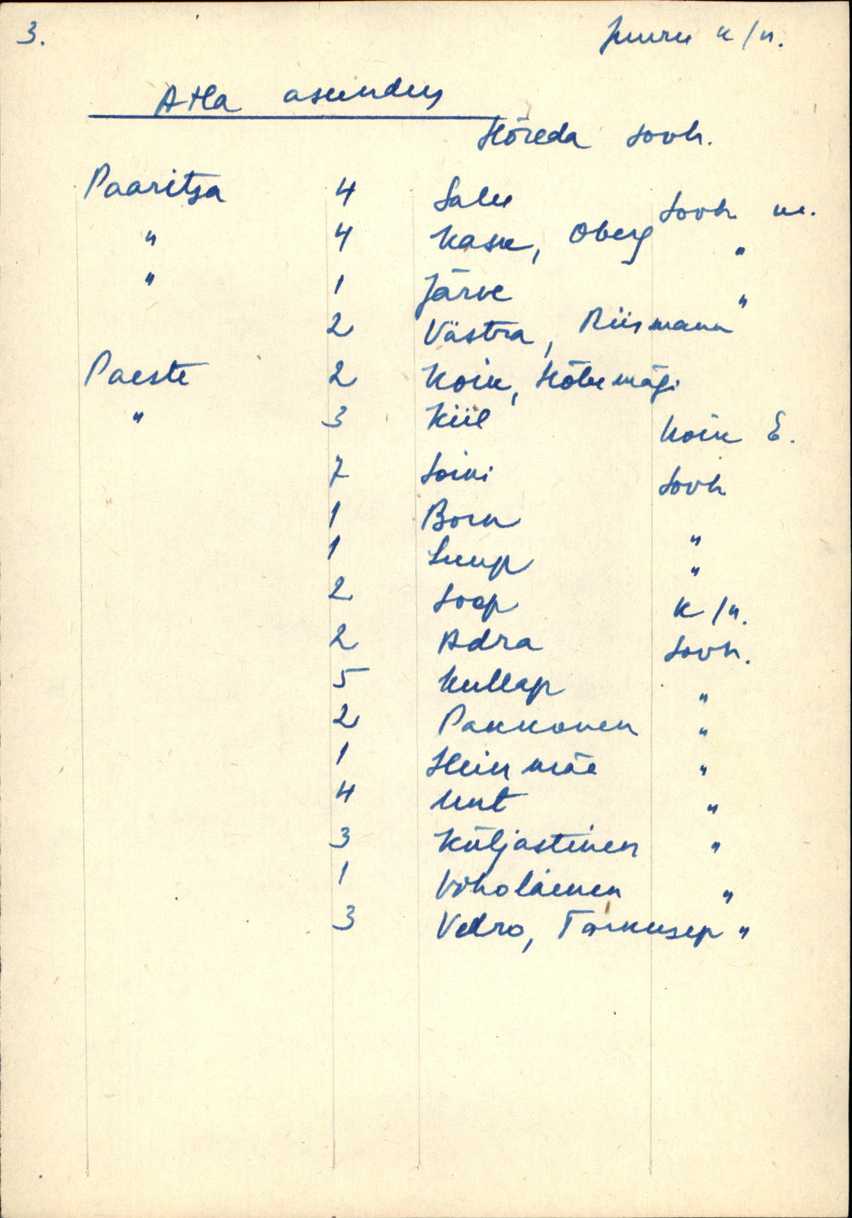 3. Juuru k/n.
Atla asundus
Hõreda sovh.
Paaritsa 4 Salu Sovh m.
" 4 Kask, Oberg "
" 1 Järve "
2 Västra, Riismann
Paeste 2 Koik, Hõbemägi
" 3 Kiil Koik E.
7 Soini Sovh
1 Born "
1 Luup "
2 Soop k/n.
2 Adra Sovh.
5 Kullap "
2 Pakkonen "
1 Heinmäe "
4 Unt "
3 Küljastinen "
1 Voholainen "
3 Vedro, "